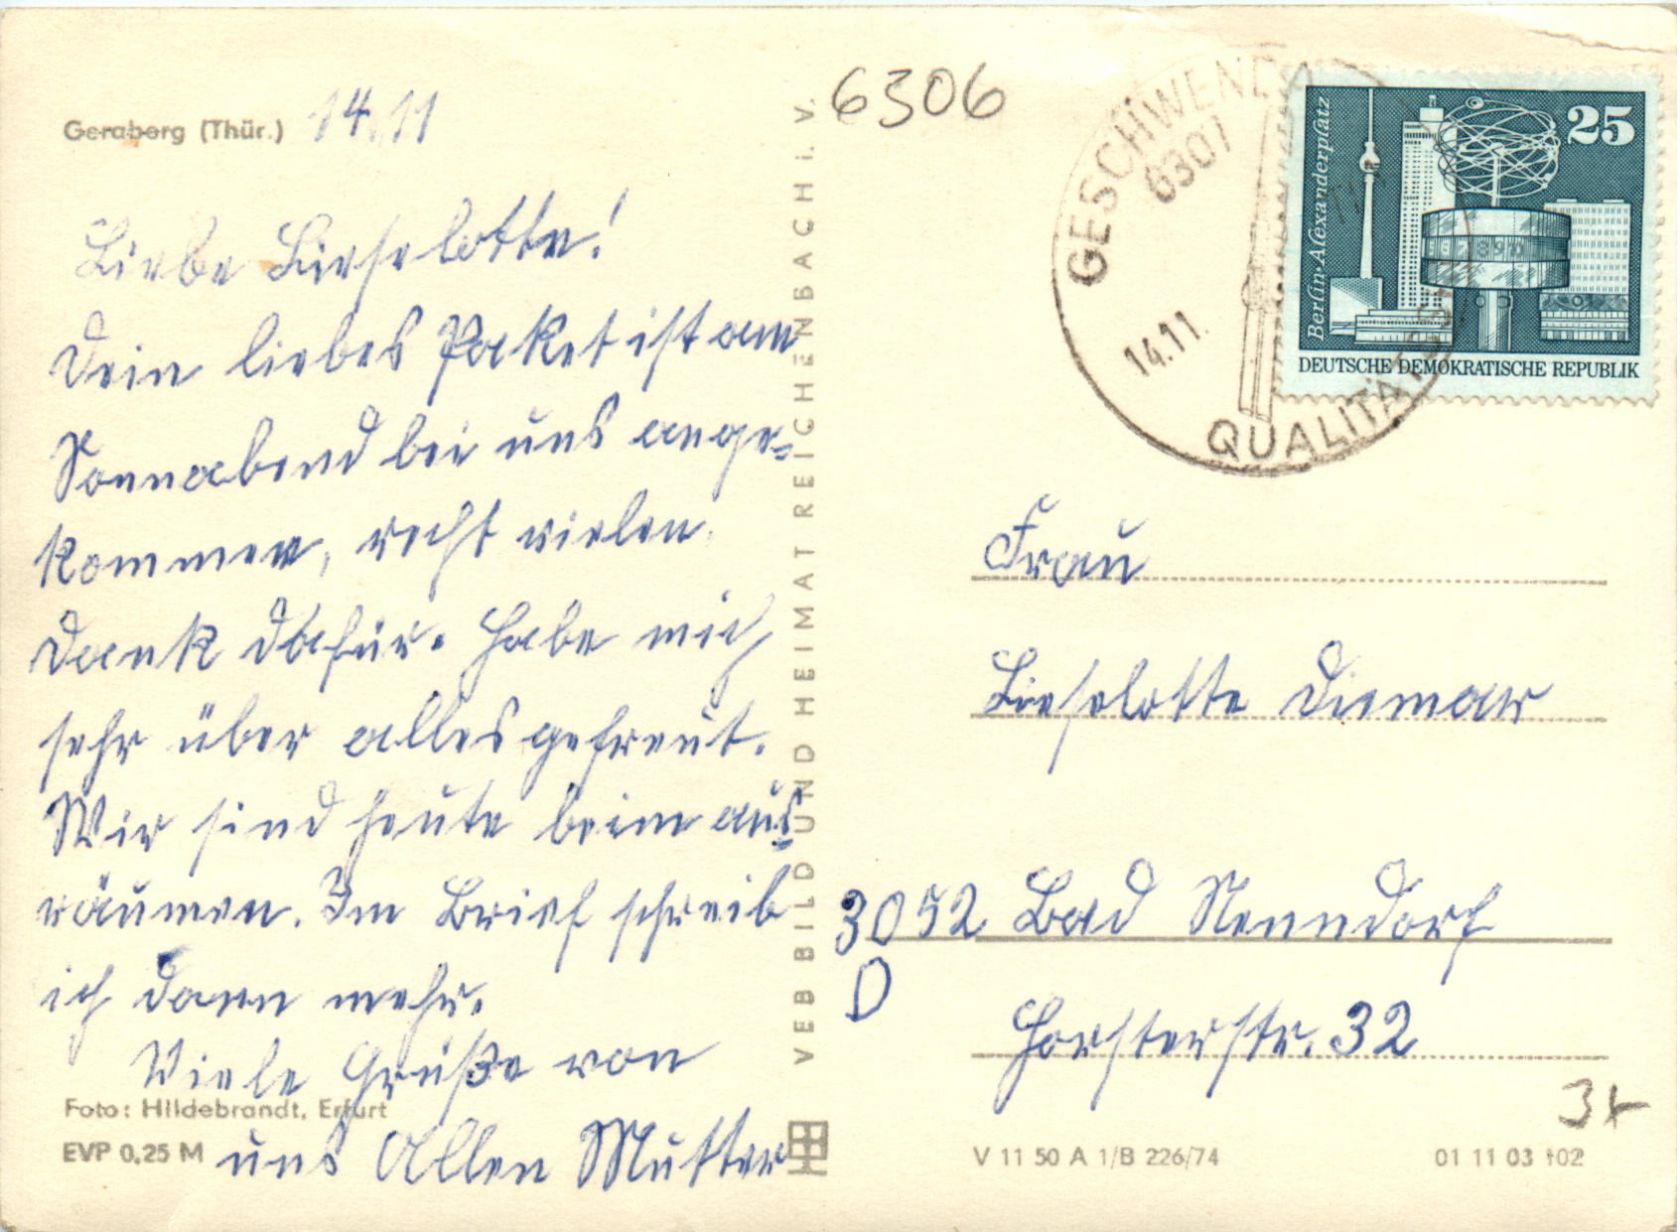 Geraberg (Thür.) 14.11
Liebe Lieselotte!
Dein liebes Paket ist am
Sonnabend bei uns ange-
kommen, recht vielen
Dank dafür. Habe mich
sehr über alles gefreut.
Wir sind heute beim aus-
räumen. Im Brief schreib
ich dann mehr.
Viele Grüße von
uns Allen Mutter
Foto: Hildebrandt, Erfurt
EVP 0,25 M
VEB BILD UND HEIMAT REICHENBACH i. V.
6306
GESCHWENDA
6307
14.11.
QUALITÄT
Berlin-Alexanderplatz
25
DEUTSCHE DEMOKRATISCHE REPUBLIK
Frau
Lieselotte Diemar
3052 Bad Nenndorf
D
Horsterstr. 32
V 11 50 A 1/B 226/74
01 11 03 102